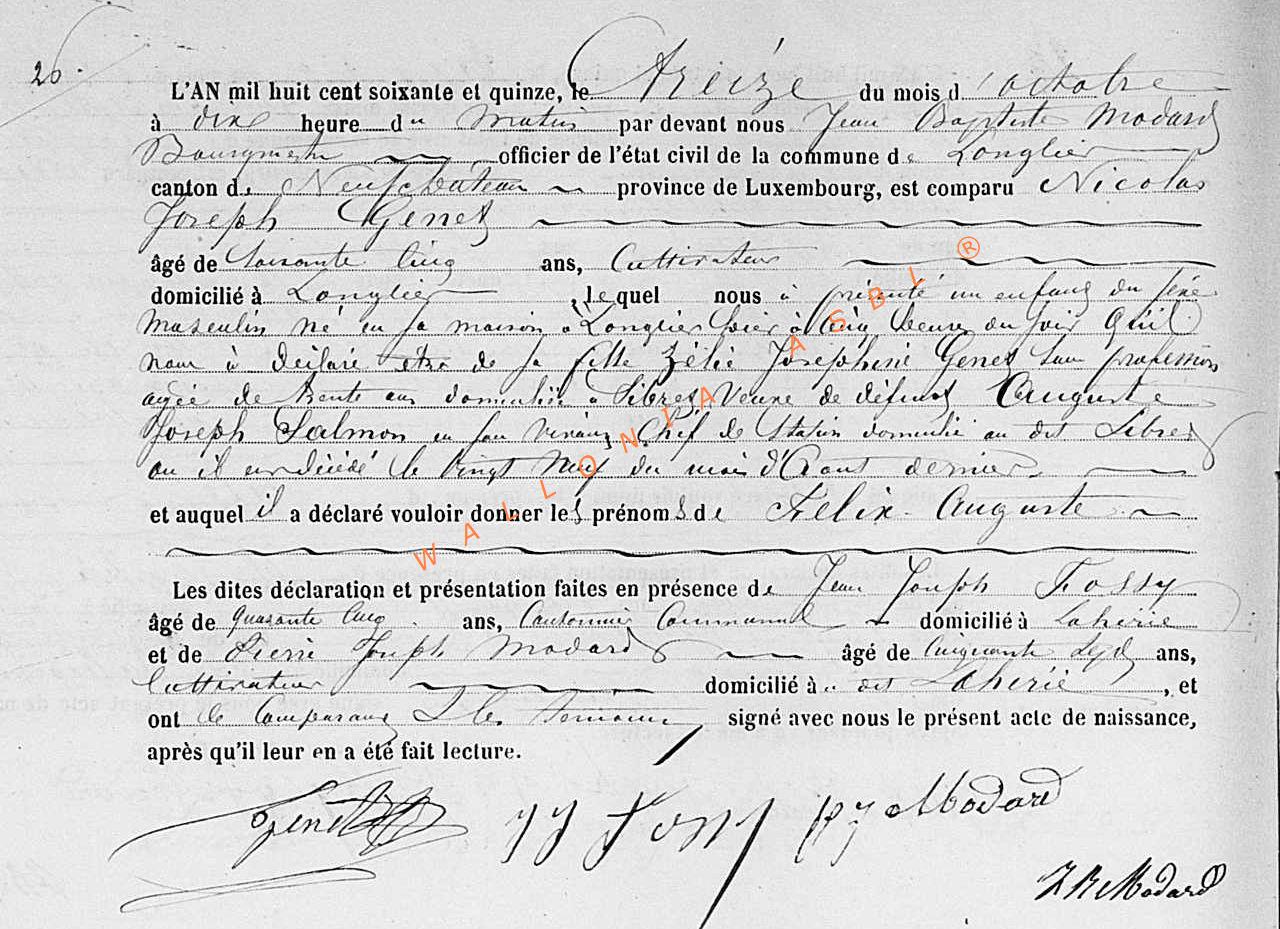 26.
L'AN mil huit cent soixante et quinze, le Treize du mois d'octobre
à dix heure du Matin par devant nous Jean Baptiste Modard
Bourgmestre officier de l'état civil de la commune de Longlier
canton de Neufchateau province de Luxembourg, est comparu Nicolas
Joseph Genet
âgé de soixante cinq ans, Cultivateur
domicilié à Longlier, lequel nous à présenté un enfant du sexe
Masculin né en sa maison à Longlier hier à cinq heure du soir quil
nous à déclaré etre de sa fille Zélie Joséphine Genet sans profession
agée de trente ans domiciliée à Veuve de défunt Auguste
Joseph Salmon en son vivant Chef de Station domicilié au dit
ou il est décédé le vingt Neuf du mois d'Aout dernier
et auquel il a déclaré vouloir donner les prénoms de Felix Auguste
Les dites déclaration et présentation faites en présence de Jean Joseph Fossy
âgé de quarante cinq ans, Cantonnier Communal domicilié à Laherie
et de Pierre Joseph Modard âgé de cinquante sept ans,
Cultivateur domicilié à u dit Laherie, et
ont le Comparant & les temoins signé avec nous le présent acte de naissance,
après qu'il leur en a été fait lecture.
WALLONIA ASBL ®
Genet JJ Fossy PJ Modard
JB Modard